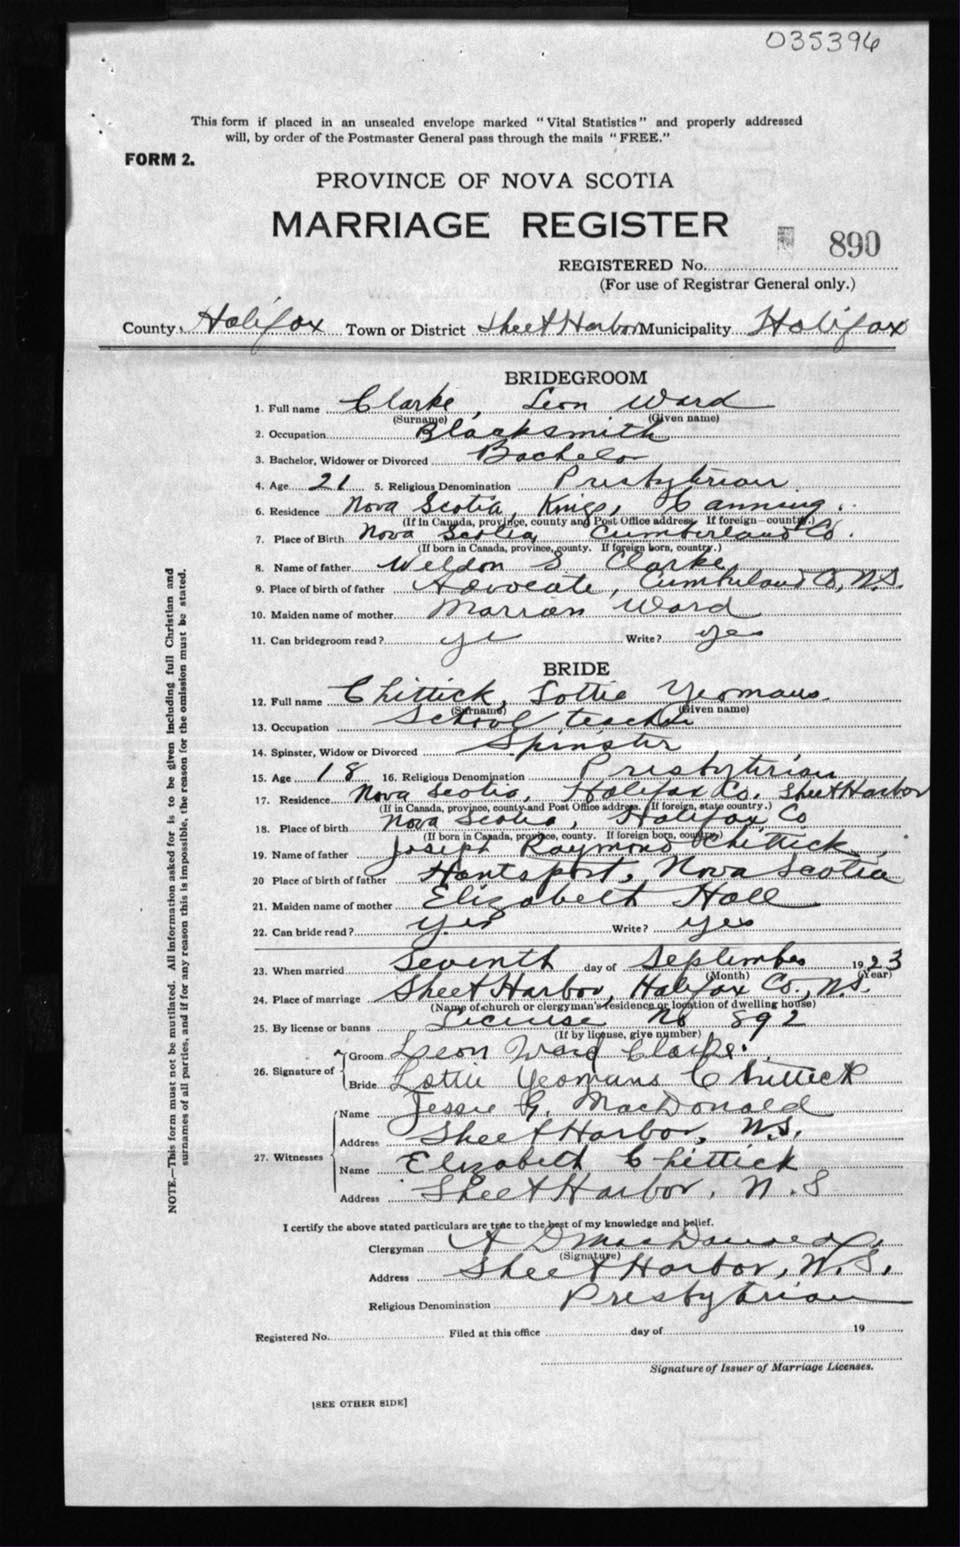 035396
This form if placed in an unsealed envelope marked "Vital Statistics" and properly addressed
will, by order of the Postmaster General pass through the mails "FREE."
FORM 2.
PROVINCE OF NOVA SCOTIA
MARRIAGE REGISTER
890
REGISTERED No.
(For use of Registrar General only.)
County Halifax Town or District Sheet Harbor Municipality Halifax
BRIDEGROOM
1. Full name Clarke, Leon Ward
(Surname) (Given name)
2. Occupation Blacksmith
3. Bachelor, Widower or Divorced Bachelor
4. Age 21 5. Religious Denomination Presbyterian
6. Residence Nova Scotia, Kings, Canning.
(If in Canada, province, county and Post Office address. If foreign—country.)
7. Place of Birth Nova Scotia, Cumberland Co.
(If born in Canada, province, county. If foreign born, country.)
8. Name of father Weldon S. Clarke
9. Place of birth of father Advocate, Cumberland Co, N.S.
10. Maiden name of mother Marrian Ward
11. Can bridegroom read? ye Write? yes
BRIDE
12. Full name Chittick, Lottie Yeomans
(Surname) (Given name)
13. Occupation School teacher
14. Spinster, Widow or Divorced Spinster
15. Age 18 16. Religious Denomination Presbyterian
17. Residence Nova Scotia, Halifax Co. Sheet Harbor
(If in Canada, province, county and Post Office address. If foreign, state country.)
18. Place of birth Nova Scotia, Halifax Co
(If born in Canada, province, county. If foreign born, country)
19. Name of father Joseph Raymond Chittick
20 Place of birth of father Hantsport, Nova Scotia
21. Maiden name of mother Elizabeth Hall
22. Can bride read? yes Write? yes
23. When married Seventh day of September 1923
(Month) (Year)
24. Place of marriage Sheet Harbor, Halifax Co., N.S.
(Name of church or clergyman's residence or location of dwelling house)
25. By license or banns License No 892
(If by license, give number)
26. Signature of Groom Leon Ward Clarke.
Bride Lottie Yeomans Chittick
27. Witnesses Name Jessie G. MacDonald
Address Sheet Harbor, N.S.
Name Elizabeth Chittick
Address Sheet Harbor, N.S
I certify the above stated particulars are true to the best of my knowledge and belief.
Clergyman A D MacDonald
(Signature)
Address Sheet Harbor, N.S.
Religious Denomination Presbyterian
Registered No. Filed at this office day of 19
Signature of Issuer of Marriage Licenses.
[SEE OTHER SIDE]
NOTE.—This form must not be mutilated. All information asked for is to be given including full Christian and
surnames of all parties, and if for any reason this is impossible, the reason for the omission must be stated.